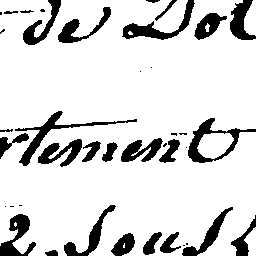 de Dol
rtement
2. sous